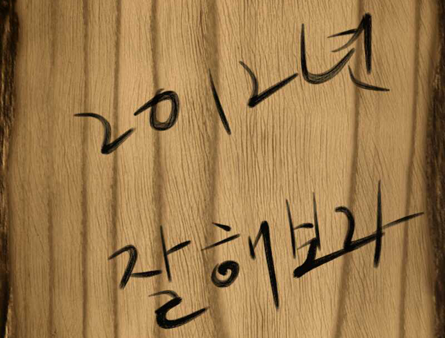 2012년
잘해보라